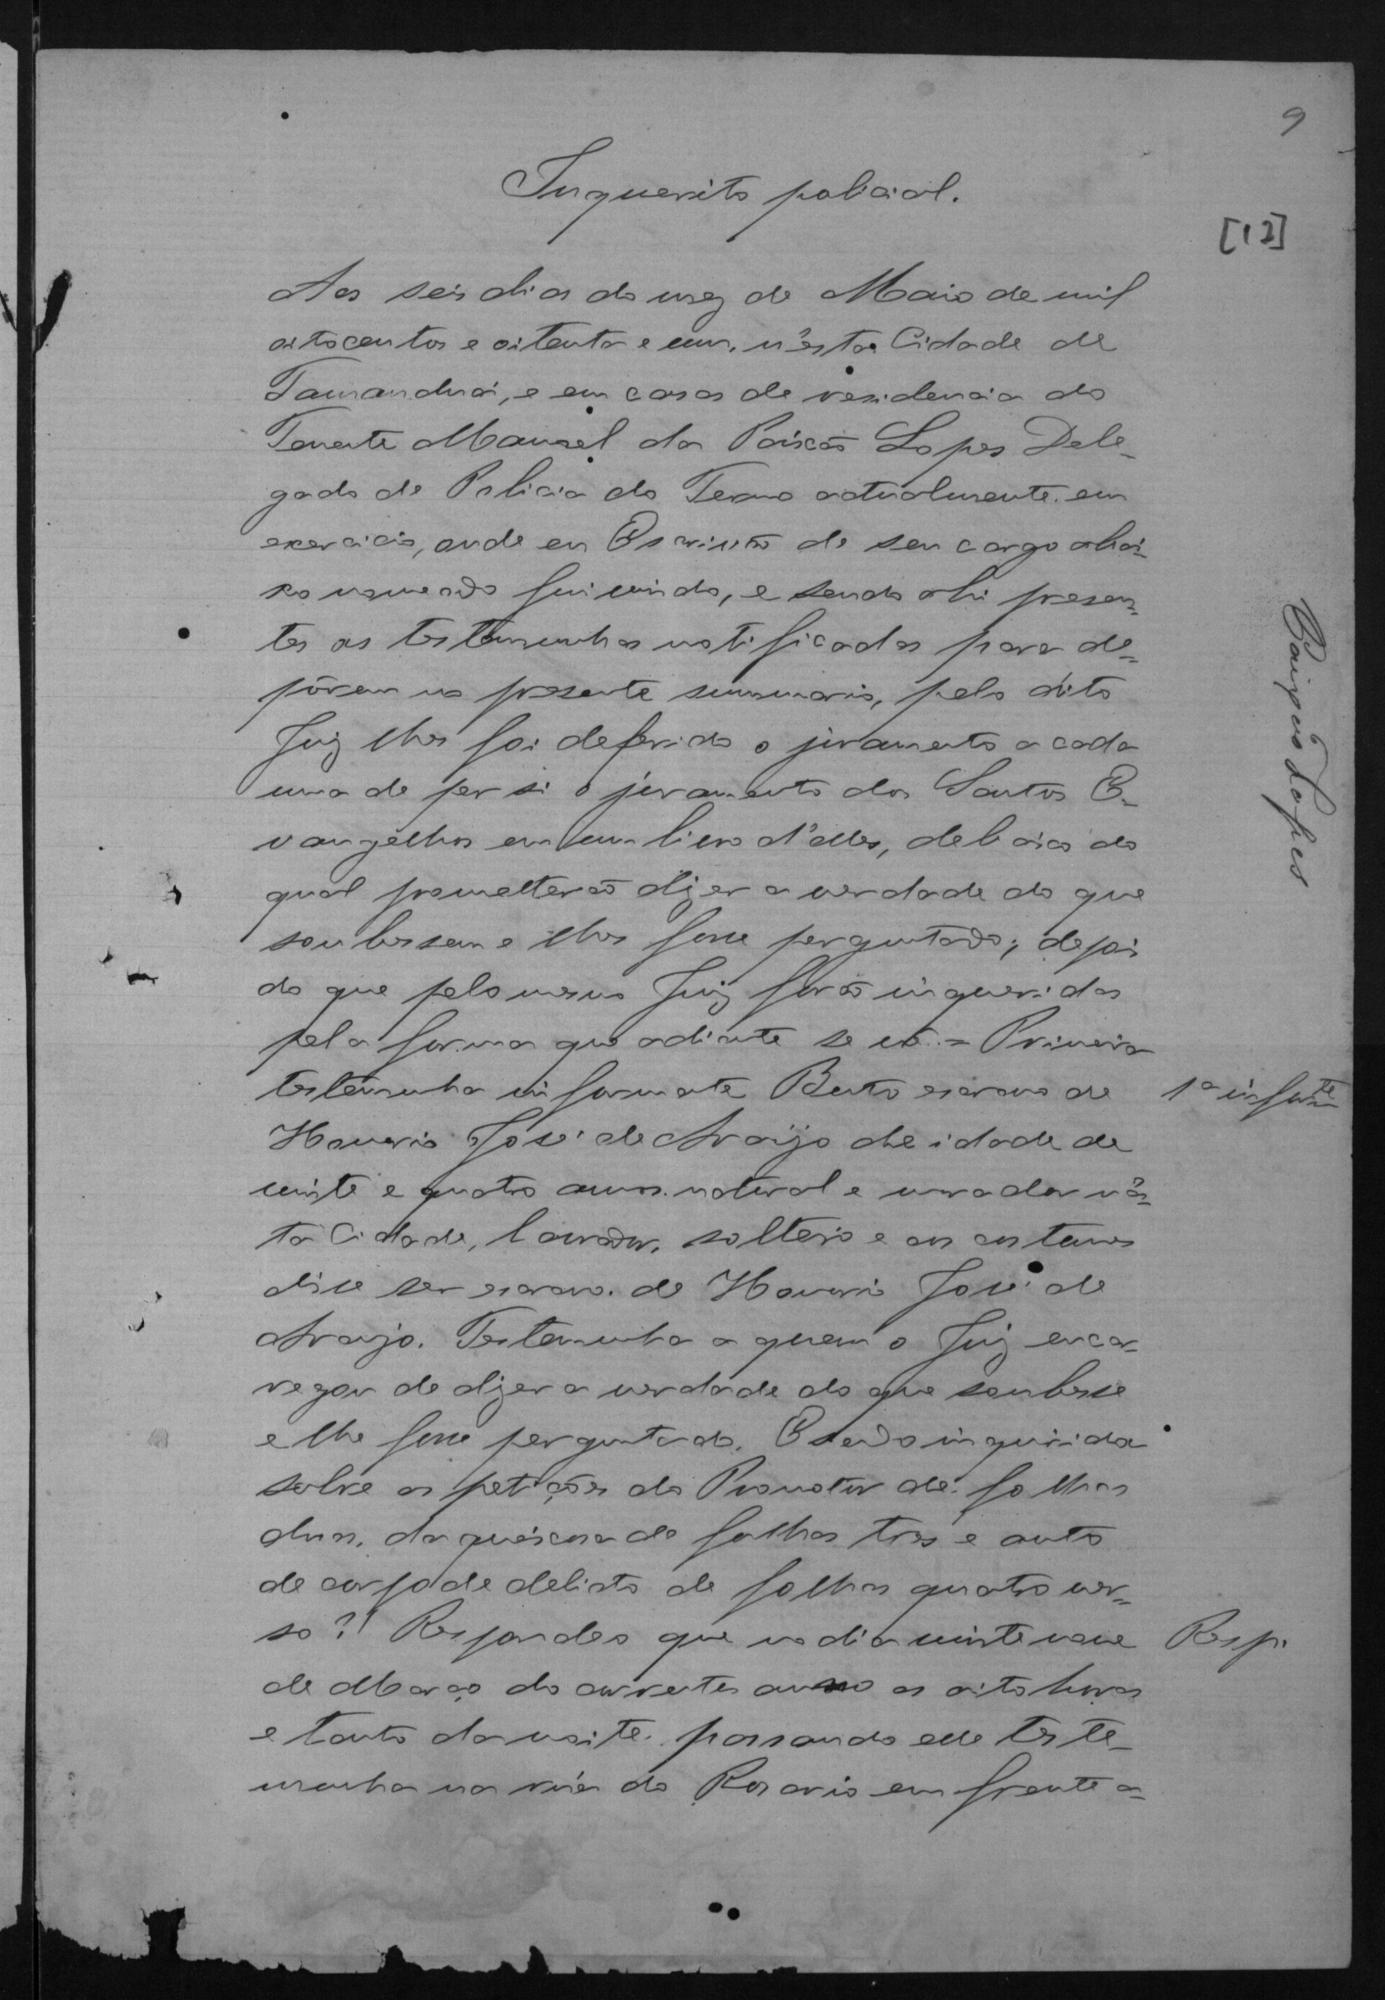 9
Inquerito policial.
[12]
Aos seis dias do mez de Maio de mil
oitocentos e oitenta e um, n'esta Cidade de
Tamanduá, e em casas de residencia do
Tenente Manoel da Paixão Lopes Dele-
gado de Policia do Termo actualmente em
exercicio, onde eu Escrivão de seu cargo abai-
xo nomeado fui vindo, e sendo ahi presen-
tes as testemunhas notificadas para de-
pôrem no presente summario, pelo dito
Juiz lhes foi deferido o juramento a cada
uma de per si o juramento dos Santos E-
vangelhos em um livro d'elles, debaixo do
qual prometterão dizer a verdade do que
soubessem e lhes fosse perguntado; depois
do que pelo mesmo Juiz forão inqueridas
pela forma que adiante se vê. = Primeira
testemunha informante Bento escravo de
1ª inform.te
Honorio José de Araújo de idade de
vinte e quatro annos. natural e morador n'ês-
ta Cidade, lavrador, solteiro e aos costumes
disse ser escravo de Honorio José de
Araujo. Testemunha a quem o Juiz encar-
regou de dizer a verdade do que soubesse
e lhe fosse perguntado. E sendo inquirida
sobre as petições do Promotor de folhas
duas, da queixosa de folhas tres e auto
de corpo de delicto de folhas quatro ver-
so? Respondeo que no dia vinte nove
Resp.
de Março do corrente anno as oito horas
e tanto da noite passando elle teste-
munha na rúa do Rosario em frente a-
Paixão Lopes